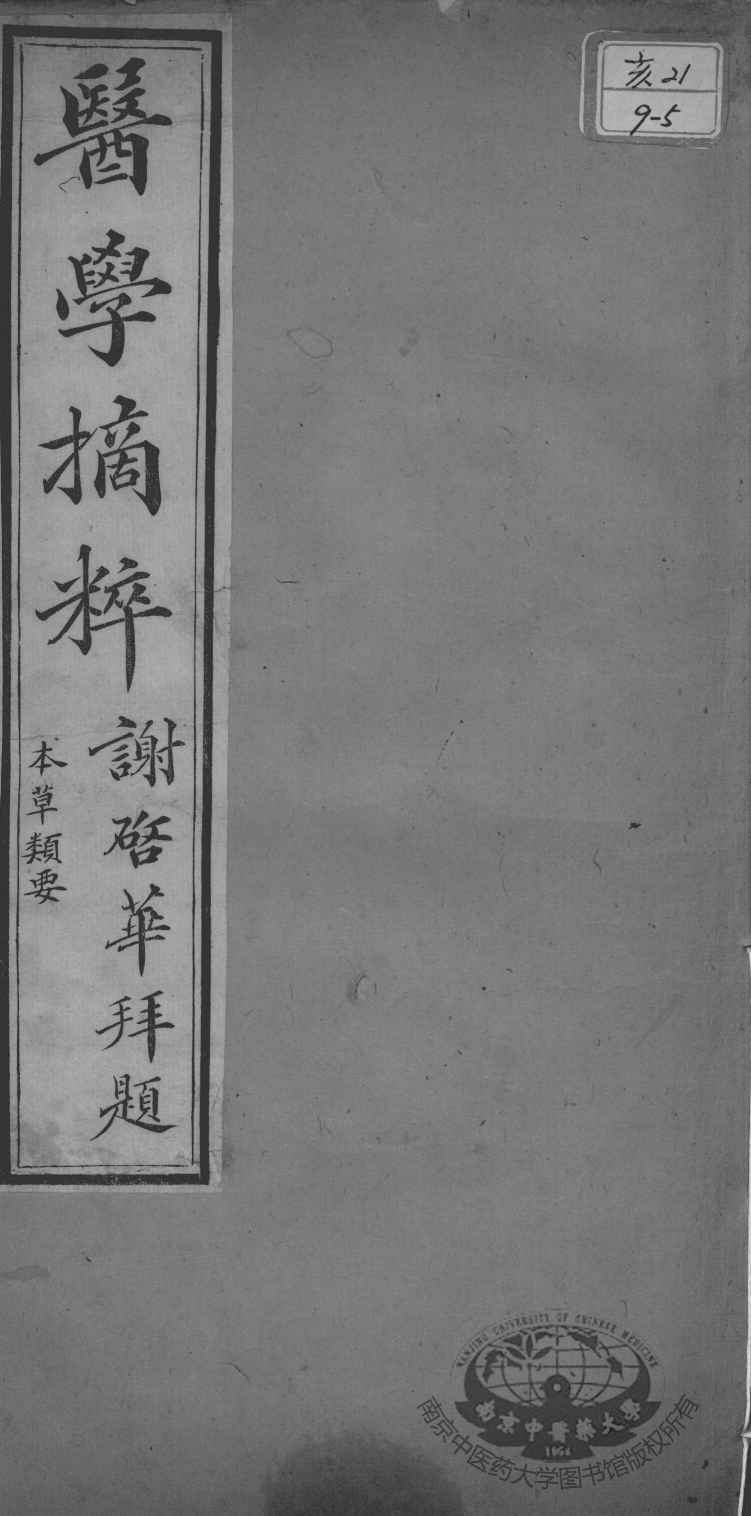 亥21
9-5
醫學摘粹
謝啓華拜題
本草類要
NANJING UNIVERSITY OF CHINESE MEDICINE
南京中醫藥大學
1954
南京中医药大学图书馆版权所有